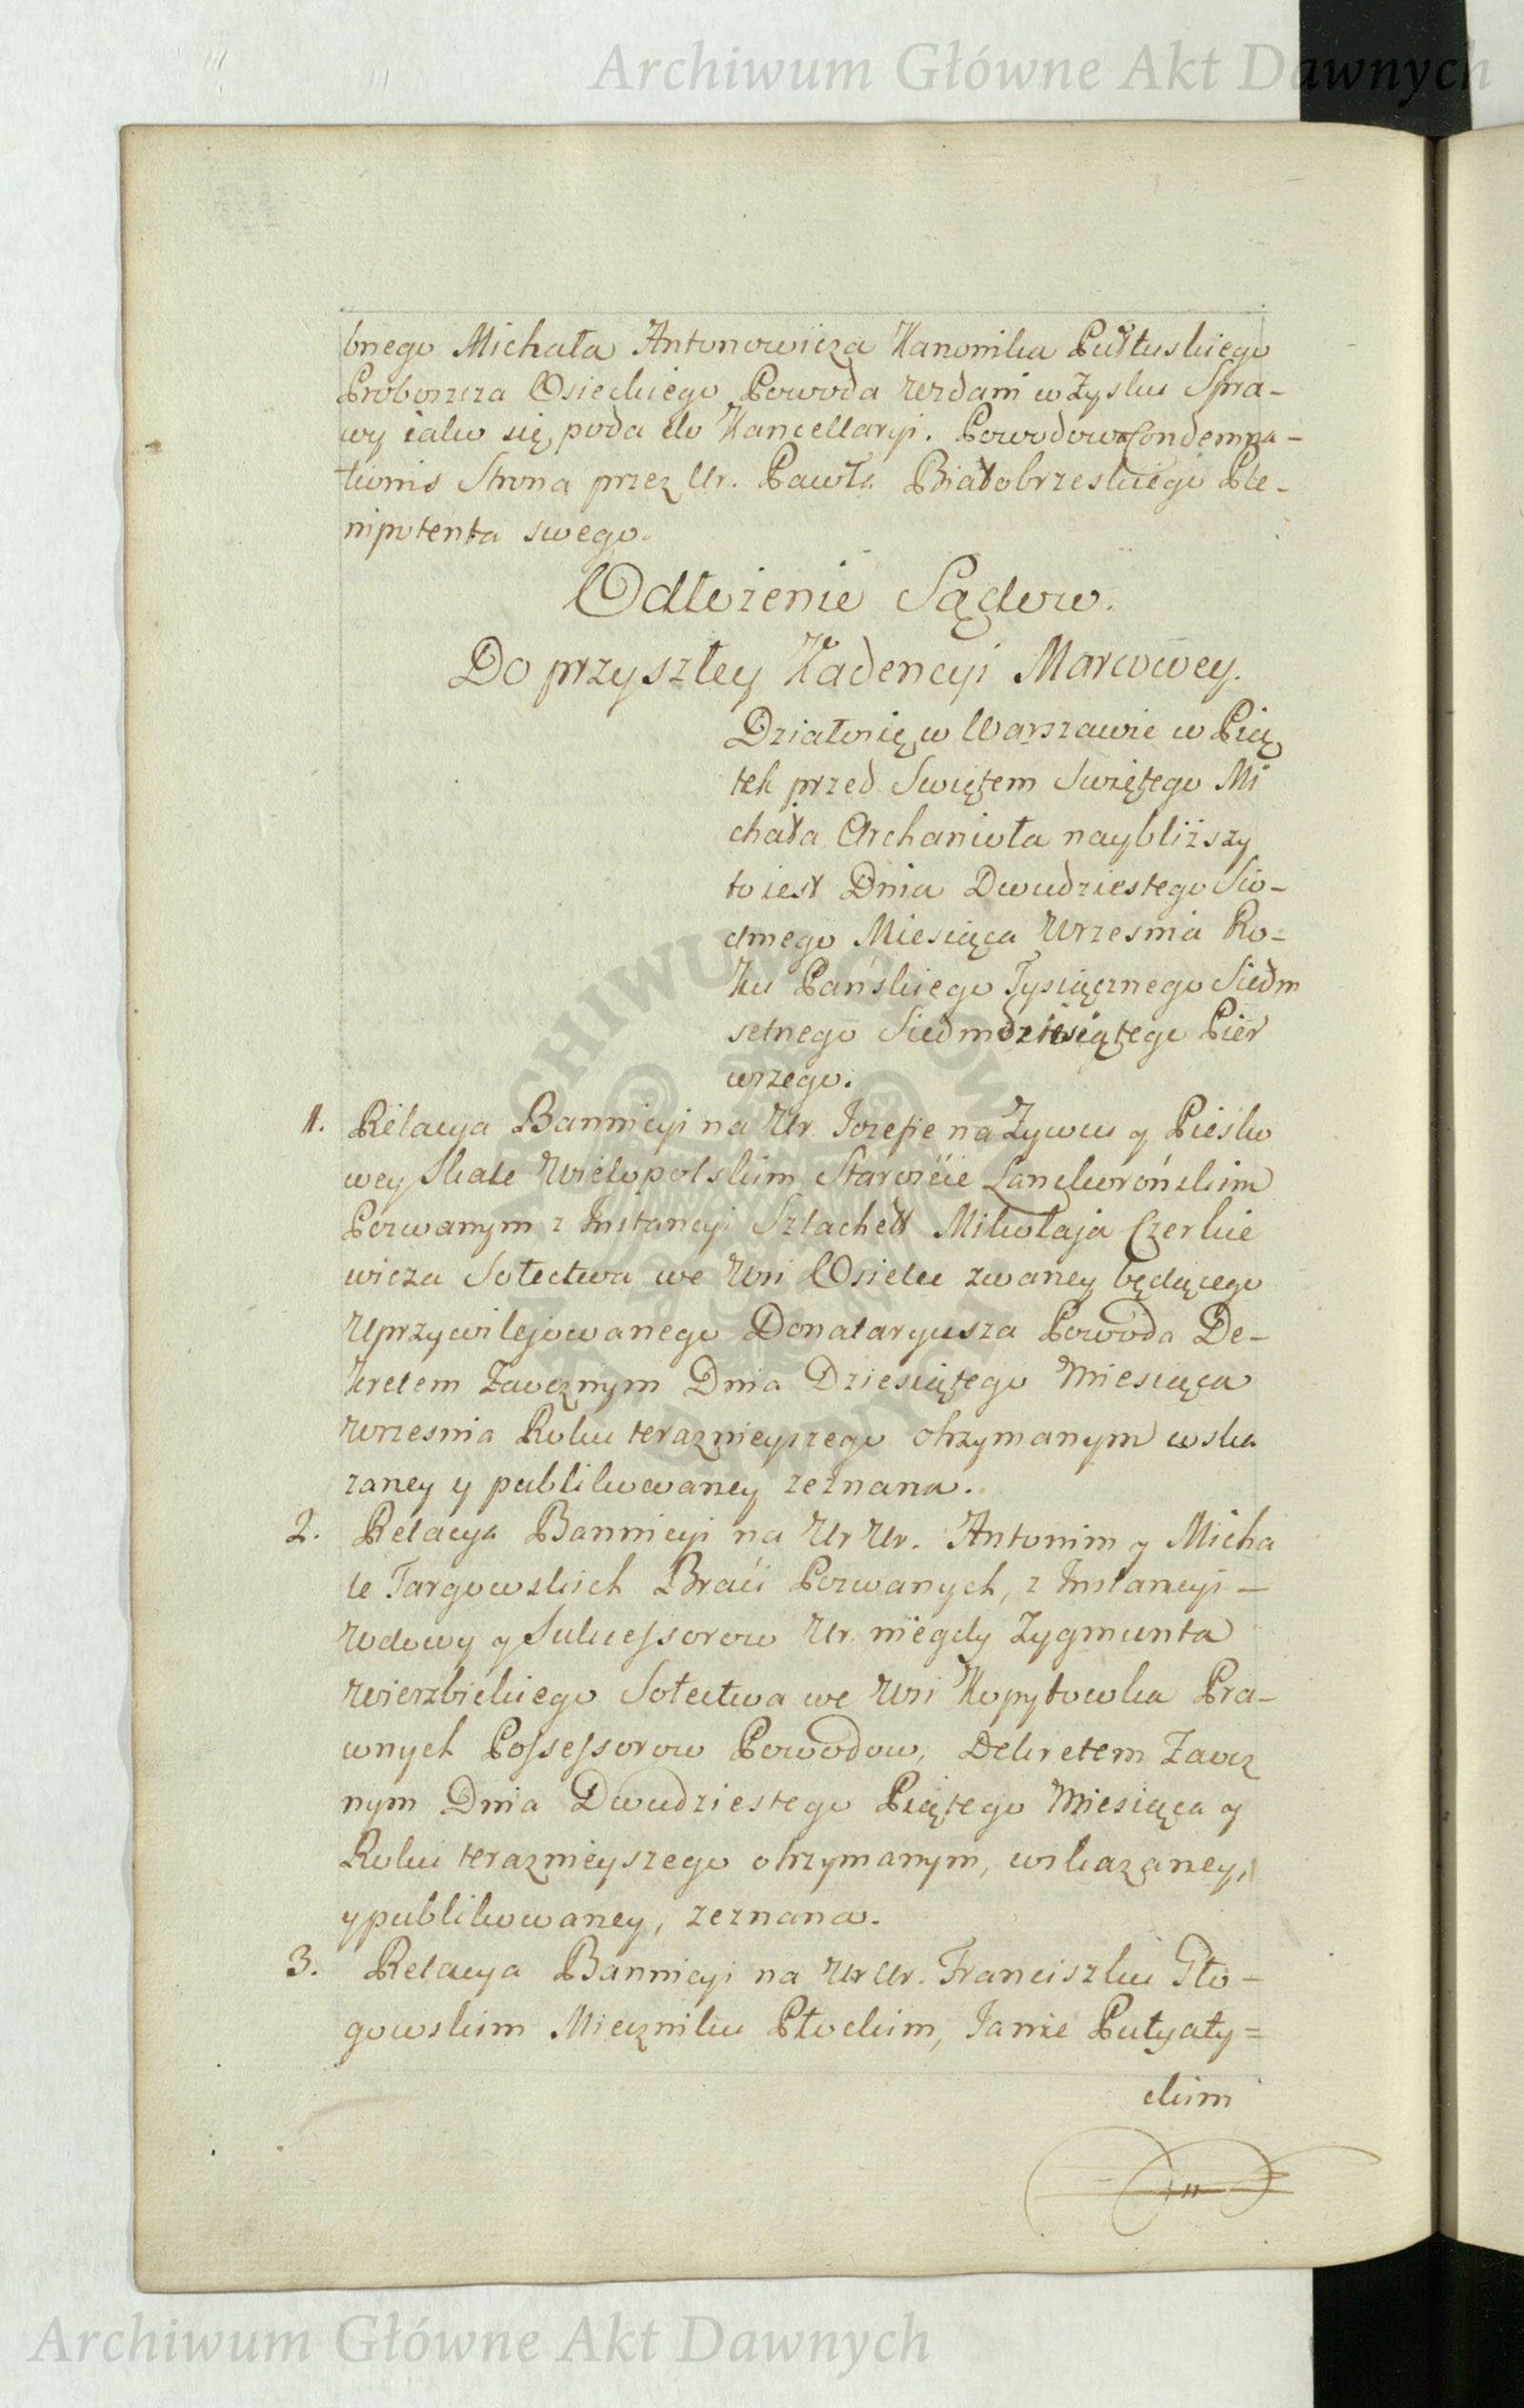 Archiwum Główne Akt Dawnych
bnego Michała Antonowicza Kanonika Pułtuskiego
Proboszcza Osieckiego Powoda wzdani w Zysku Spra-
wy iako się poda do Kancellaryi. Powodowa Condemna-
tionis Strona przez Ur. Pawła Białobrzeskiego Ple-
nipotenta swego.
Odłożenie Sądow.
Do przyszłey Kadencyi Marcowey.
Działo się w Warszawie w Pią
tek przed Swiętem Swiętego Mi
chała Archanioła naybliższy
to iest Dnia Dwudziestego Sio-
dmego Miesiąca Wrzesnia Ro-
ku Pańskiego Tysiącznego Siedm
setnego Siedmdziesiątego Pier
wszego.
1. Relacya Bannicyi na Ur. Jozefie na Zywcu y Piesko
wey Skale Wielopolskim Staroście Lanckorońskim
Pozwanym z Instancyi Szlachett Mikołaja Czerkie
wicza Sołectwa we Wsi Osielec zwaney będącego
Uprzywilejowanego Donataryusza Powoda De-
kretem Zaocznym Dnia Dziesiątego Miesiąca
Wrzesnia Roku teraznieyszego otrzymanym wska
zaney y publikowaney zeznana.
2. Relacya Bannicyi na Ur Ur. Antonim y Micha
le Targowskich Braci Pozwanych, z Instancyi –
Wdowy y Sukcessorow Ur. niegdy Zygmunta
Wierzbickiego Sołectwa we Wsi Kopytowka Pra-
wnych Possessorow Powodow, Dekretem Zaocz
nym Dnia Dwudziestego Piątego Miesiąca y
Roku teraznieyszego otrzymanym, wskazaney,
y publikowaney, zeznana.
3. Relacya Bannicyi na Ur Ur. Franciszku Gło-
gowskim Mieczniku Płockim, Janie Putyaty=
ckim
Archiwum Główne Akt Dawnych